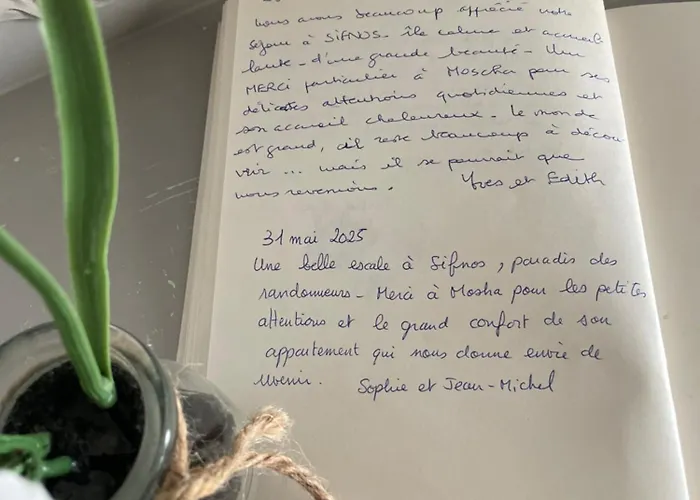 nous avons beaucoup apprécié notre
séjour à SIFNOS. île calme et accueil
lante - d'une grande beauté - Un
MERCI particulier à Moscha pour ses
délicates attentions quotidiennes et
son accueil chaleureux - le monde
est grand, il reste beaucoup à décou
vrir ... mais il se pourrait que
nous revenions.
Yves et Edith
31 mai 2025
Une belle escale à Sifnos, paradis des
randonneurs - Merci à Mosha pour les petites
attentions et le grand confort de son
appartement qui nous donne envie de
revenir. Sophie et Jean-Michel